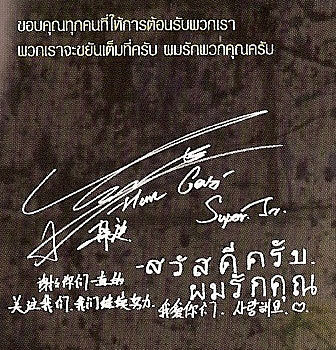 ขอบคุณทุกคนที่ให้การต้อนรับพวกเรา
พวกเราจะขยันเต็มที่ครับ ผมรักพวกคุณครับ
Han Geng
Super Jr.
韩庚
สวัสดีครับ.
ผมรักคุณ
谢谢你们一直的
关注我们. 我们继续努力. 我爱你们. 사랑해요 ♡